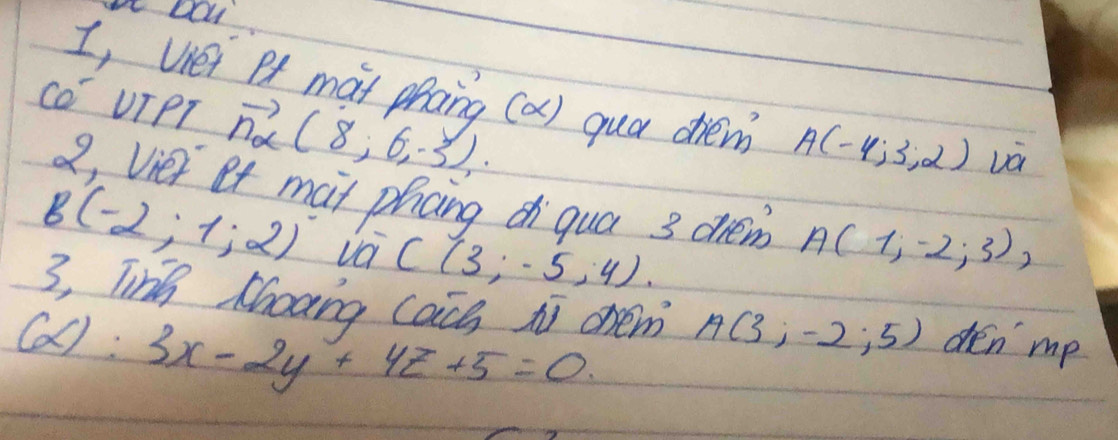 bài
1, Viết Pt mặt phẳng (α) qua điểm A(-4;3;2) và
có VTPT n⃗α (8; 6,-3).
2, Viết Pt mặt phẳng đi qua 3 điểm A(1;-2;3),
B(-2;1;2) và C(3;-5;4).
3, Tính khoảng cách từ điểm A(3;-2;5) đến mp
(α): 3x-2y+4z+5=0.